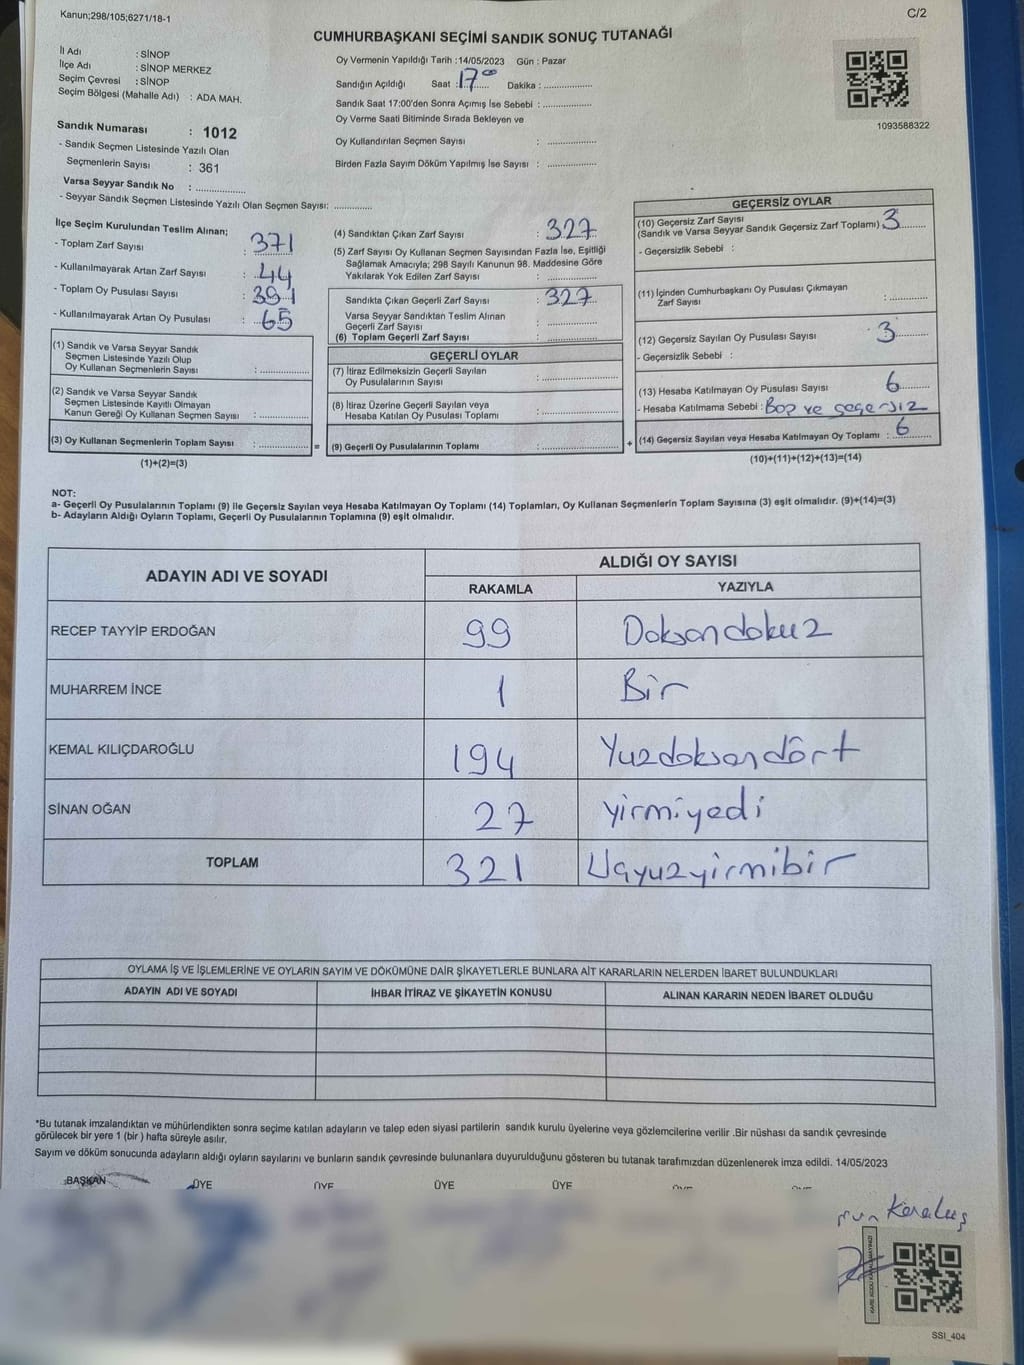 Kanun;298/105;6271/18-1
C/2
CUMHURBAŞKANI SEÇİMİ SANDIK SONUÇ TUTANAĞI
İl Adı : SİNOP
İlçe Adı : SİNOP MERKEZ
Seçim Çevresi : SİNOP
Seçim Bölgesi (Mahalle Adı) : ADA MAH.
Oy Vermenin Yapıldığı Tarih :14/05/2023 Gün : Pazar
Sandığın Açıldığı Saat :17⁰⁰ Dakika : ................
Sandık Saat 17:00'den Sonra Açımış İse Sebebi : ................
Oy Verme Saati Bitiminde Sırada Bekleyen ve
Oy Kullandırılan Seçmen Sayısı : ................
Birden Fazla Sayım Döküm Yapılmış İse Sayısı : ................
1093588322
Sandık Numarası : 1012
- Sandık Seçmen Listesinde Yazılı Olan
Seçmenlerin Sayısı : 361
Varsa Seyyar Sandık No : ................
- Seyyar Sandık Seçmen Listesinde Yazılı Olan Seçmen Sayısı: ............
İlçe Seçim Kurulundan Teslim Alınan;
- Toplam Zarf Sayısı : 371
- Kullanılmayarak Artan Zarf Sayısı : 44
- Toplam Oy Pusulası Sayısı : 391
- Kullanılmayarak Artan Oy Pusulası : 65
(1) Sandık ve Varsa Seyyar Sandık
Seçmen Listesinde Yazılı Olup
Oy Kullanan Seçmenlerin Sayısı : ................
(2) Sandık ve Varsa Seyyar Sandık
Seçmen Listesinde Kayıtlı Olmayan
Kanun Gereği Oy Kullanan Seçmen Sayısı : ................
(3) Oy Kullanan Seçmenlerin Toplam Sayısı : ................ =
(1)+(2)=(3)
(4) Sandıktan Çıkan Zarf Sayısı : 327
(5) Zarf Sayısı Oy Kullanan Seçmen Sayısından Fazla İse, Eşitliği
Sağlamak Amacıyla; 298 Sayılı Kanunun 98. Maddesine Göre
Yakılarak Yok Edilen Zarf Sayısı : ................
Sandıkta Çıkan Geçerli Zarf Sayısı : 327
Varsa Seyyar Sandıktan Teslim Alınan
Geçerli Zarf Sayısı : ................
(6) Toplam Geçerli Zarf Sayısı : ................
GEÇERLİ OYLAR
(7) İtiraz Edilmeksizin Geçerli Sayılan
Oy Pusulalarının Sayısı : ................
(8) İtiraz Üzerine Geçerli Sayılan veya
Hesaba Katılan Oy Pusulası Toplamı : ................
(9) Geçerli Oy Pusulalarının Toplamı : ................ +
GEÇERSİZ OYLAR
(10) Geçersiz Zarf Sayısı
(Sandık ve Varsa Seyyar Sandık Geçersiz Zarf Toplamı) 3
- Geçersizlik Sebebi :
(11) İçinden Cumhurbaşkanı Oy Pusulası Çıkmayan
Zarf Sayısı : ............
(12) Geçersiz Sayılan Oy Pusulası Sayısı 3
- Geçersizlik Sebebi :
(13) Hesaba Katılmayan Oy Pusulası Sayısı 6
- Hesaba Katılmama Sebebi : Boş ve geçersiz
(14) Geçersiz Sayılan veya Hesaba Katılmayan Oy Toplamı : 6
(10)+(11)+(12)+(13)=(14)
NOT:
a- Geçerli Oy Pusulalarının Toplamı (9) ile Geçersiz Sayılan veya Hesaba Katılmayan Oy Toplamı (14) Toplamları, Oy Kullanan Seçmenlerin Toplam Sayısına (3) eşit olmalıdır. (9)+(14)=(3)
b- Adayların Aldığı Oyların Toplamı, Geçerli Oy Pusulalarının Toplamına (9) eşit olmalıdır.
ADAYIN ADI VE SOYADI
ALDIĞI OY SAYISI
RAKAMLA YAZIYLA
RECEP TAYYİP ERDOĞAN 99 Doksandokuz
MUHARREM İNCE 1 Bir
KEMAL KILIÇDAROĞLU 194 Yuzdoksandört
SİNAN OĞAN 27 yirmiyedi
TOPLAM 321 Uçyuzyirmibir
OYLAMA İŞ VE İŞLEMLERİNE VE OYLARIN SAYIM VE DÖKÜMÜNE DAİR ŞİKAYETLERLE BUNLARA AİT KARARLARIN NELERDEN İBARET BULUNDUKLARI
ADAYIN ADI VE SOYADI İHBAR İTİRAZ VE ŞİKAYETİN KONUSU ALINAN KARARIN NEDEN İBARET OLDUĞU
*Bu tutanak imzalandıktan ve mühürlendikten sonra seçime katılan adayların ve talep eden siyasi partilerin sandık kurulu üyelerine veya gözlemcilerine verilir .Bir nüshası da sandık çevresinde
görülecek bir yere 1 (bir ) hafta süreyle asılır.
Sayım ve döküm sonucunda adayların aldığı oyların sayılarını ve bunların sandık çevresinde bulunanlara duyurulduğunu gösteren bu tutanak tarafımızdan düzenlenerek imza edildi. 14/05/2023
BAŞKAN ÜYE ÜYE ÜYE ÜYE
SSI_404